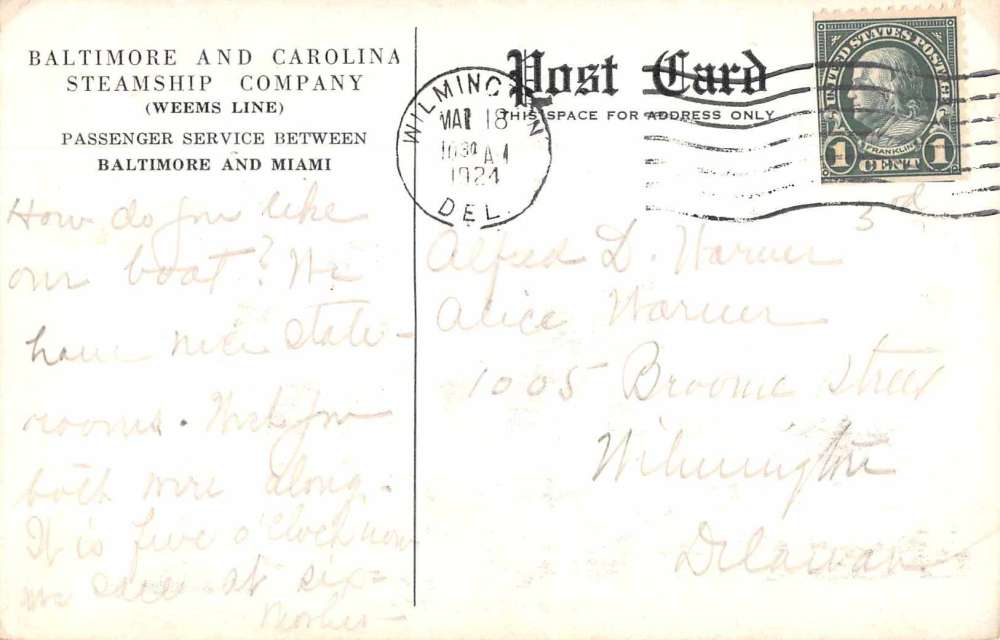 BALTIMORE AND CAROLINA
STEAMSHIP COMPANY
(WEEMS LINE)
PASSENGER SERVICE BETWEEN
BALTIMORE AND MIAMI
How do you like
our boat? We
have nice state-
rooms. Wish you
both were along.
It is five o'clock now
we sail at six-
Mother
Post Card
THIS SPACE FOR ADDRESS ONLY
WILMINGTON
MAR 18
10 30 A M
1924
DEL.
UNITED STATES POSTAGE
FRANKLIN
1 CENT 1
Alfred D. Warner 3rd
Alice Warner
1005 Broome Street
Wilmington
Delaware